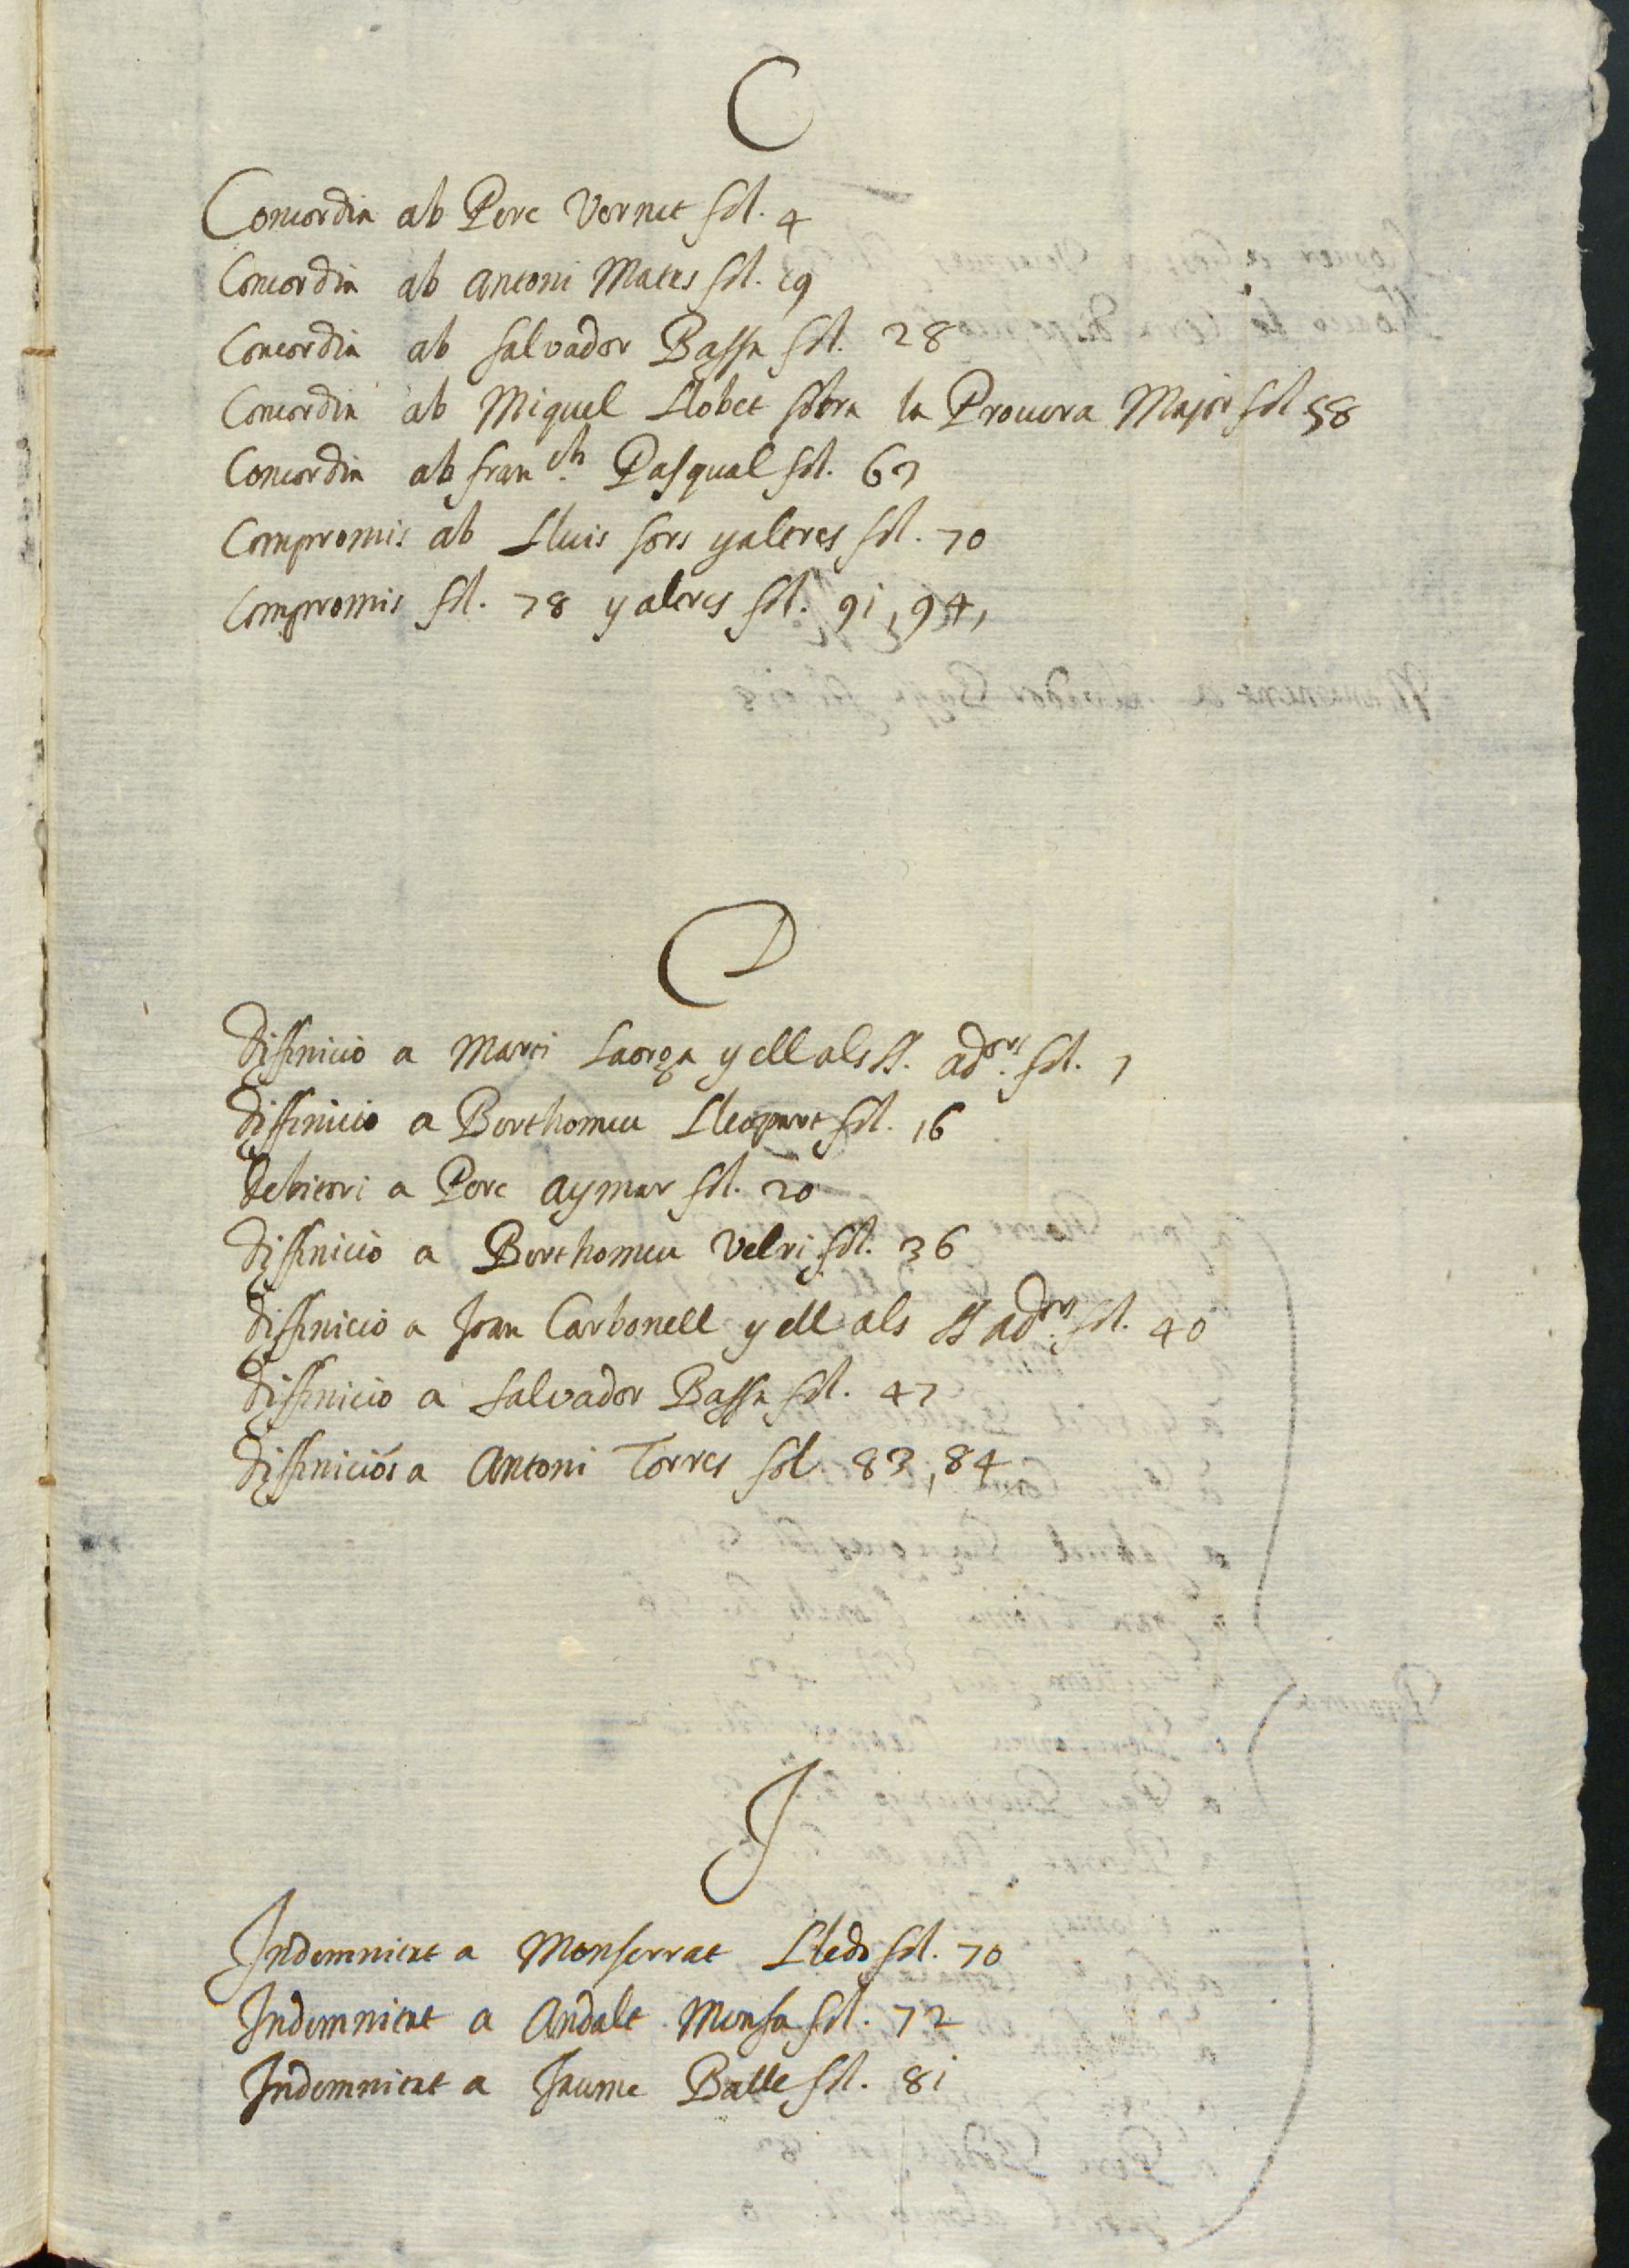 C
Concordia ab Pere Vernet fol. 4
Concordia ab Antoni Mates fol. 19
Concordia ab Salvador Bassa fol. 28
Concordia ab Miquel Llobet sobra la Procura Major fol 58
Concordia ab Fran.ch Pasqual fol. 67
Compromis ab Lluis Sors y altres fol. 70
Compromis fol. 78 y altres fol. 91, 94,
D
Diffinicio a Marti y ell als SS. ad.ors fol. 7
Diffinicio a Berthomeu Lleopart fol. 16
Debitori a Pere Aymar fol. 20
Diffinicio a Berthomeu Velri fol. 36
Diffinicio a Joan Carbonell y ell als SS ad.ors fol. 40
Diffinicio a Salvador Bassa fol. 47
Diffiniciós a Antoni Torres fol 83, 84
J
Indemnitat a Monserrat Lledo fol. 70
Indemnitat a Andalt Monsa fol. 72
Indemnitat a Jaume Batlle fol. 81